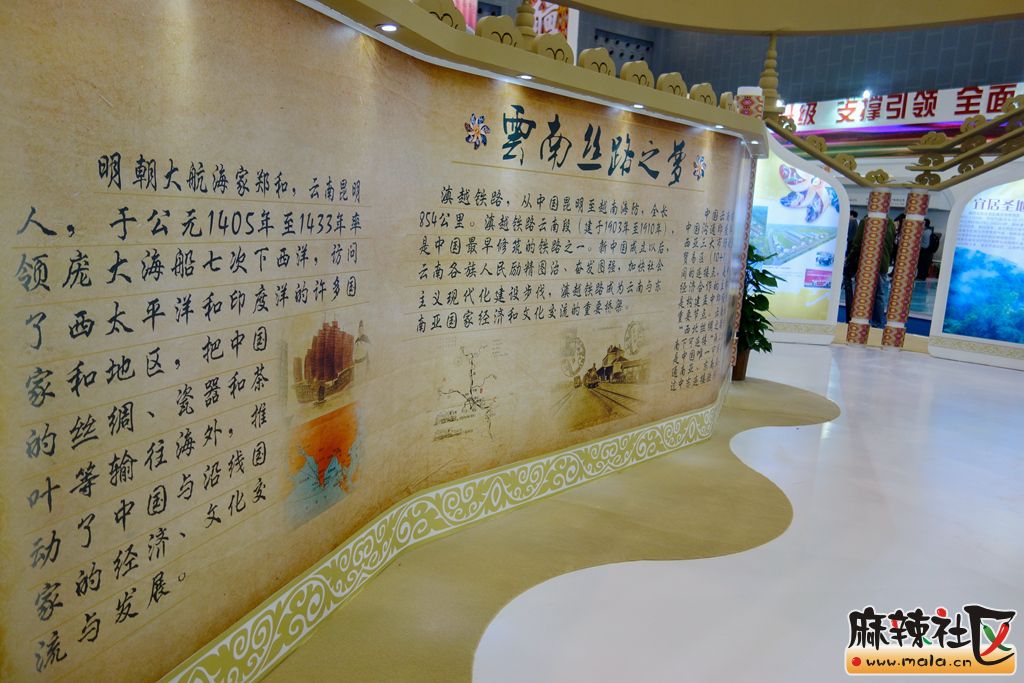 雲南丝路之梦
明朝大航海家郑和，云南昆明
人，于公元1405年至1433年率
领庞大海船七次下西洋，访问
了西太平洋和印度洋的许多国
家和地区，把中国
的丝绸、瓷器和茶
叶等输往海外，推
动了中国与沿线国
家的经济、文化交
流与发展。
滇越铁路，从中国昆明至越南海防，全长
854公里。滇越铁路云南段（建于1903年至1910年），
是中国最早修筑的铁路之一。新中国成立以后，
云南各族人民励精图治、奋发图强，加快社会
主义现代化建设步伐，滇越铁路成为云南与东
南亚国家经济和文化交流的重要桥梁。
支撑引领 全面
宜居圣
麻辣社区
www.mala.cn